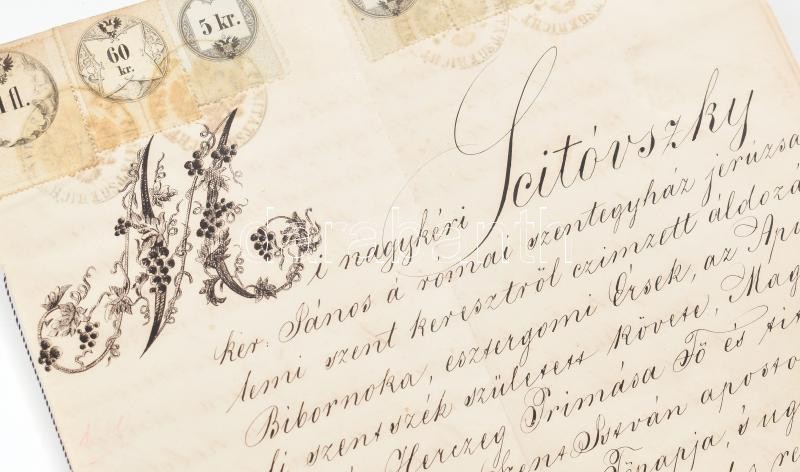 1 fl.
60 kr.
5 kr.
Mi nagykéri Scitóvszky
ker. János á római szentegyház jerúzsa
lemi szent keresztről czimzett áldozá
Bibornoka, esztergomi Érsek, az Apu
li szentszék született követe, Mag
Herczeg Primása Fő és tit
Szent István aposto
Főnapja, s ug
darabanth